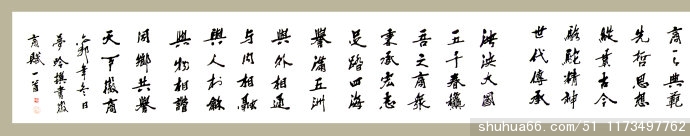 商之典範
先哲思想
縱貫古今
駱駝精神
世代傳承
泱泱大國
五千春穐
吾之商衆
秉承宏志
足踏四海
譽滿五洲
與外相通
與内相融
與人
與物相諧
同鄉共譽
天下徽商
卯年冬日
夢玲撰書徽
商賦一首
shuhua66.com/51_1173497762